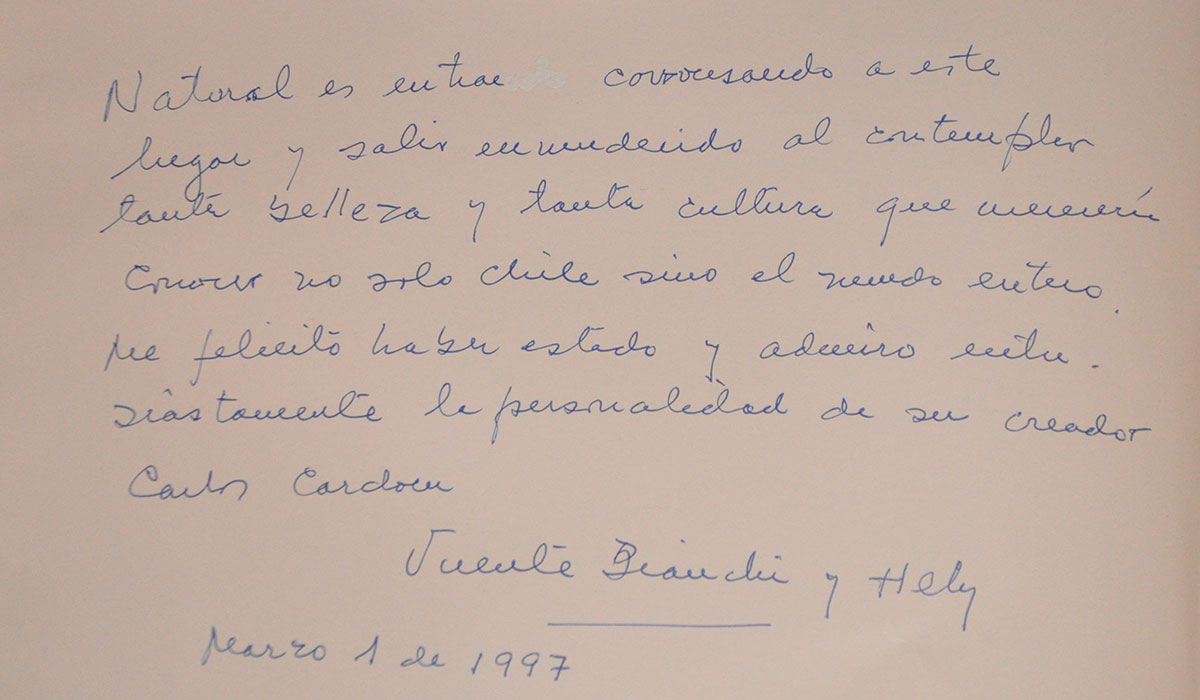 Natural es entrar conversando a este
lugar y salir enmudecido al contemplar
tanta belleza y tanta cultura que merecería
conocer no solo chile sino el mundo entero.
Me felicitó haber estado y admiro entu-
siástamente la personalidad de su creador
Carlos Cardoen
Vicente Bianchi y Hely
Marzo 1 de 1997